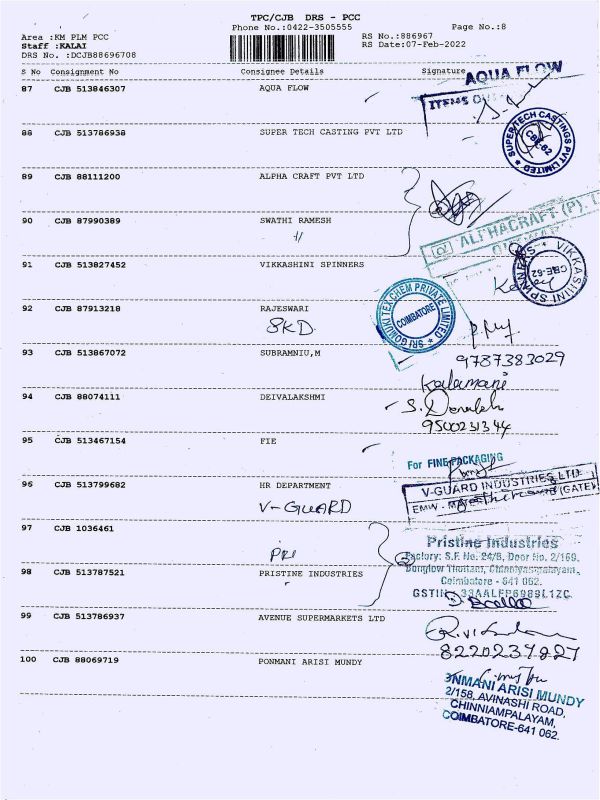 TPC/CJB DRS - PCC
Phone No.:0422-3505555 Page No.:8
Area :KM PLM PCC RS No.:886967
Staff :KALAI RS Date:07-Feb-2022
DRS No. :DCJB88696708
S No Consignment No Consignee Details Signature
AQUA FLOW
87 CJB 513846307 AQUA FLOW
ITEMS
88 CJB 513786938 SUPER TECH CASTING PVT LTD
SUPER TECH CASTINGS PVT LIMITED
CBE-62
89 CJB 88111200 ALPHA CRAFT PVT LTD
90 CJB 87990389 SWATHI RAMESH
ALPHACRAFT (P).
91 CJB 513827452 VIKKASHINI SPINNERS
VIKKASHINI SPINNERS
CBE-62
92 CJB 87913218 RAJESWARI
SKD
SRI GOKULKI TEX CHEM PRIVATE LIMITED
COIMBATORE
93 CJB 513867072 SUBRAMNIU,M
9787383029
Kalamani
94 CJB 88074111 DEIVALAKSHMI
9500231344
95 CJB 513467154 FIE
For FINE PACKAGING
96 CJB 513799682 HR DEPARTMENT
V-GUARD
V-GUARD INDUSTRIES LTD
EMW - (GATE)
97 CJB 1036461
PRI
Pristine Industries
Factory: S.F. No. 24/8, Door No. 2/169,
98 CJB 513787521 PRISTINE INDUSTRIES
Coimbatore - 641 062.
99 CJB 513786937 AVENUE SUPERMARKETS LTD
8220237827
100 CJB 88069719 PONMANI ARISI MUNDY
ONMANI ARISI MUNDY
2/158, AVINASHI ROAD,
CHINNIAMPALAYAM,
COIMBATORE-641 062.